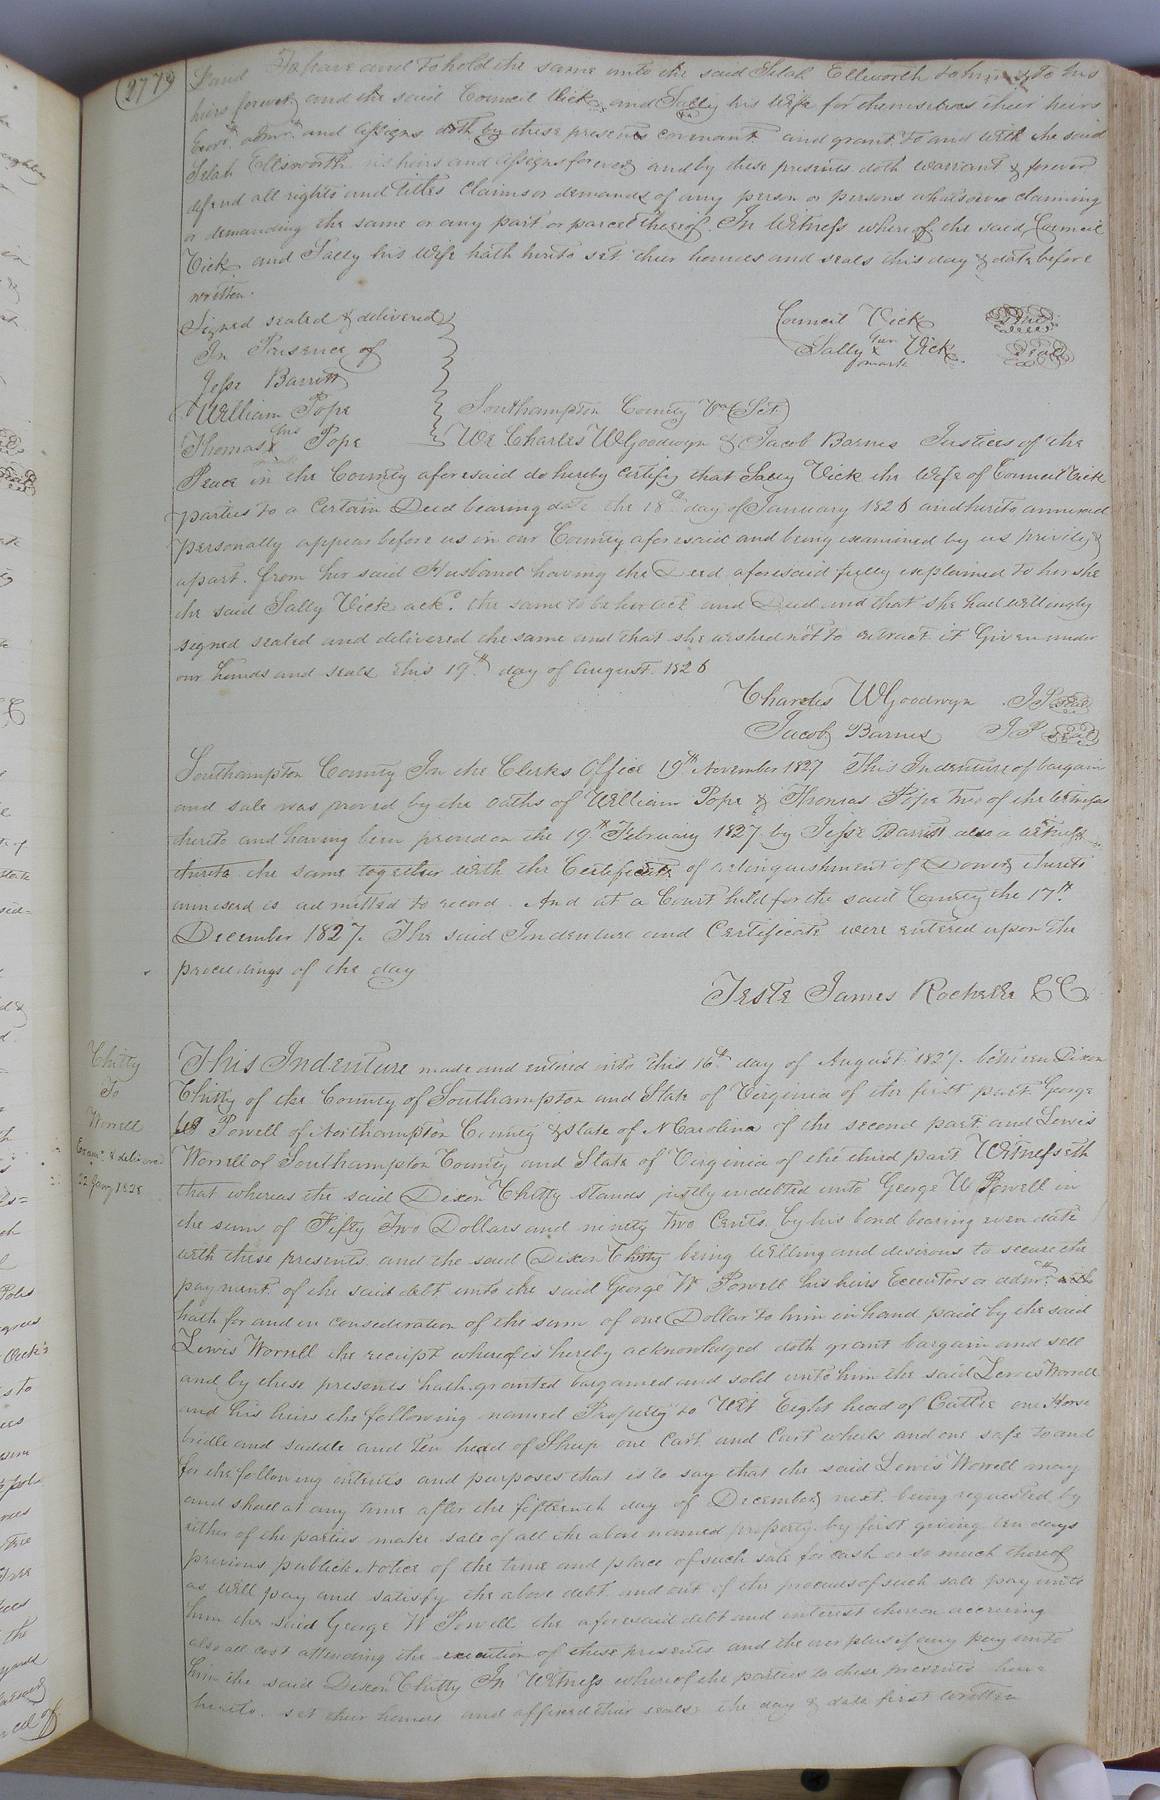 277
Land To have and to hold the same unto the said Selah Ellsworth to him & to his
heirs forever and the said Council Vick and Sally his Wife for themselves their heirs
Exors admrs and Assigns doth by these presents covenant and grant to and with the said
Selah Ellsworth his heirs and assigns forever and by these presents doth warrant & forever
defend all rights and titles Claims or demands of any person or persons whatsoever claiming
or demanding the same or any part or parcel thereof. In Witness whereof the said Council
Vick and Sally his Wife hath hereto set their hands and seals this day & date before
written.
Signed sealed & delivered
In Presence of
Jesse Barrett
William Pope
Thomas his Pope
Council Vick Seal
Sally her x mark Vick Seal
Southampton County Va (Sct)
We Charles W Goodwyn & Jacob Barnes Justices of the
Peace in the County aforesaid do hereby certify that Sally Vick the Wife of Council Vick
parties to a Certain Deed bearing date the 18th day of January 1826 and hereto annexed
personally appear before us in our County aforesaid and being examined by us privily &
apart from her said Husband having the Deed aforesaid fully explained to her she
the said Sally Vick ackd. the same to be her act and Deed and that she had willingly
signed sealed and delivered the same and that she wished not to retract it Given under
our hands and seals this 19th day of August 1826
Charles W Goodwyn JP Seal
Jacob Barnes JP Seal
Southampton County In the Clerks Office 19th November 1827 This Indenture of bargain
and sale was proved by the oaths of William Pope & Thomas Pope two of the witnesses
thereto and having been proved on the 19th February 1827 by Jesse Barrett also a witness
thereto the same together with the Certificate of relinquishment of Dower thereto
annexed is admitted to record. And at a Court held for the said County the 17th
December 1827. The said Indenture and Certificate were entered upon the
proceedings of the day
Teste James Rochelle CC
Chitty
To
Worrell
Exam. & delivered
22 Jany 1828
This Indenture made and entered into this 16th day of August 1827. between Dixon
Chitty of the County of Southampton and State of Virginia of the first part George
W Powell of Northampton County & State of N Carolina of the second part and Lewis
Worrell of Southampton County and State of Virginia of the third part Witnesseth
that whereas the said Dixon Chitty stands justly indebted unto George W Powell in
the sum of Fifty Two Dollars and ninety two Cents. by his bond bearing even date
with these presents and the said Dixon Chitty being Willing and desirous to secure the
payment of the said debt unto the said George W Powell his heirs Executors or admrs
hath for and in consideration of the sum of one Dollar to him in hand paid by the said
Lewis Worrell the receipt whereof is hereby acknowledged doth grant bargain and sell
and by these presents hath granted bargained and sold unto him the said Lewis Worrell
and his heirs the following named Property to Wit Eight head of Cattle one Horse
bridle and saddle and Ten head of Sheep one Cart and Cart wheels and one safe to and
for the following intents and purposes that is to say that the said Lewis Worrell may
and shall at any time after the fifteenth day of December next being requested by
either of the parties make sale of all the above named property by first giving ten days
previous publick Notice of the time and place of such sale for cash or so much thereof
as will pay and satisfy the above debt and out of the proceeds of such sale pay unto
him the said George W Powell the aforesaid debt and interest thereon accruing
also all cost attending the execution of these presents and the over plus if any pay unto
him the said Dixon Chitty In Witness whereof the parties to these presents have
hereto set their hands and affixed their seals the day & date first written